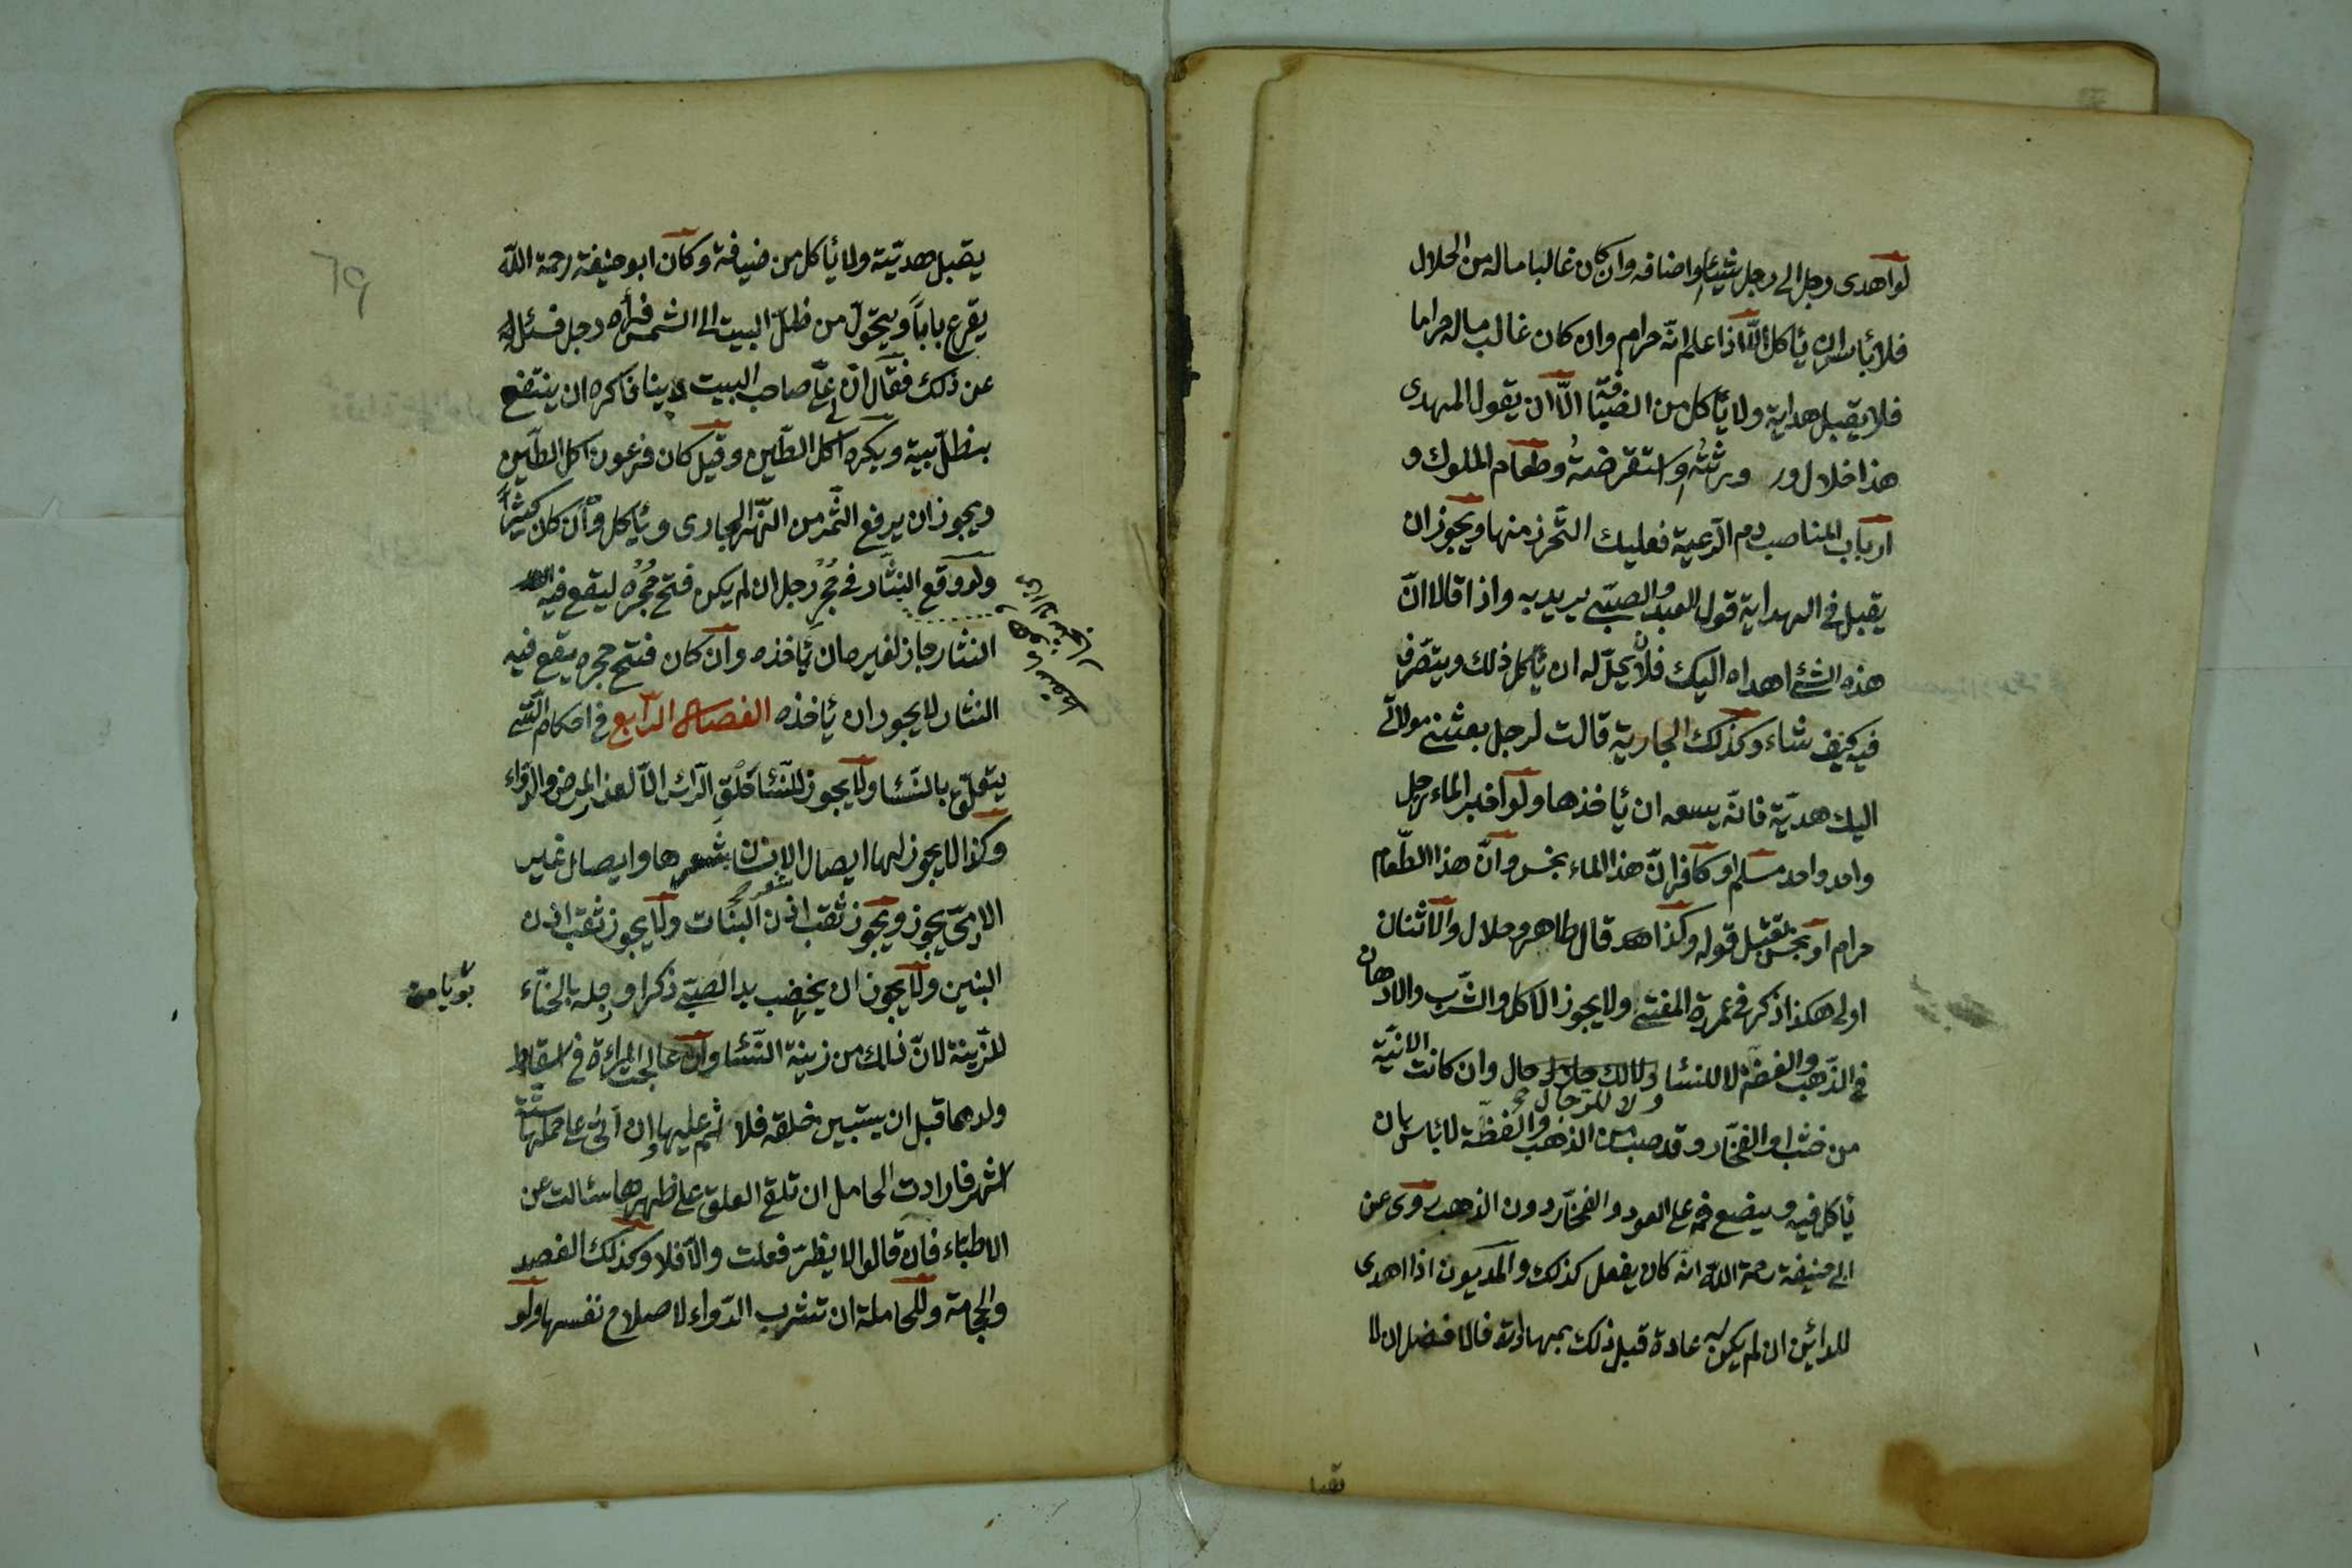 لو اهدى رجل الى رجل شيئا او اضافه وان كان غالبا ماله من الحلال
فلا بأس ان يأكل الّا اذا علم انّه حرام وان كان غالب ماله حراما
فلا يقبل هداية ولا يأكل من الضيافة الّا ان يقول المهدى
هذا حلال ورثته او استقرضته وطعام الملوك و
ارباب المناصب دم الرّعية فعليك التّحرز منها ويجوز ان
يقبل فى الهداية قول العبد والصبّى يريد به واذا قالا انّ
هذه الشئ اهداه اليك فلان يحلّ له ان يأكل ذلك ويتصّرف
فيه كيف شاء وكذلك الجارية قالت لرجل بعثنى مولائى
اليك هديّة فانّه يسعه ان يأخذها ولو اخبر الماء رجل
واحد واحد مسلم او كافر انّ هذا الماء نجس وانّ هذا الطّعام
حرام او نجس يقبل قوله وكذا قال طاهر وحلال والاثنان
اولى هكذا ذكر فى عمدة المفتى ولا يجوز الاكل والشّرب والادهان
فى الذّهب والفضّة لا للنسا ولا للرّجال وان كانت الانيّة
من خشب او الفخّار وقد صبب من الذهب والفضّة لا بأس بان
يأكل فيه ويضع فمه على العود والفخّار دون الذهب روى عن
ابى حنيفة رحمة اللّه انّه كان يفعل كذلك والمديون اذا اهدى
للدائن ان لم يكن له عادة قبل ذلك بمهاداته فالافضل ان لا
يقبل
يقبل هديّة ولا يأكل من ضيافة وكان ابو حنيفة رحمة اللّه
يقرع باباً ويتحوّل من ظلّ البيت الى الشمس فرأه رجل فسئله
عن ذلك فقال انّ لى على صاحب البيت دينا فاكره ان ينتفع
بظلّ بيته ويكره اكل الطّين وقيل كان فرعون اكل الطّين
ويجوز ان يرفع الثّمر من النّهر الجارى ويأكل وان كان كثيراً
ولو وقع النثار فى حجر رجل ان لم يكن فتح حجره ليقع فيه
النثار جاز لغيره ان يأخذه وان كان فتح حجره يقع فيه
النثار لا يجوز ان يأخذه الفصل الرّابع فى احكام الّتى
يتعلّق بالنّسا ولا يجوز للنّسا حلق الرأس الّا لعذر المرض والدّواء
وكذا لا يجوز لها ايصال الانسان بشعرها وايصال شعر غير
الادمىّ يجوز ويجوز ثقب اذن البنات ولا يجوز ثقب اذن
البنين ولا يجوز ان يخضب يد الصبّى ذكرا ورجله بالحنّاء
للزّينة لانّ ذلك من زينة النّسا وان عالجت المرءة فى اسقاط
ولدها قبل ان يستبين خلقه فلا اثم عليها وان اتى على حملها ستّة
اشهر فارادت الحامل ان تلقى العلق على ظهرها سئالت عن
الاطبّاء فان قالوا لا يضرّ فعلت والّا فلا وكذلك الفصد
والحجامة وللحاملة ان تشرب الدّواء لاصلاح نفسها ولو
٦٩